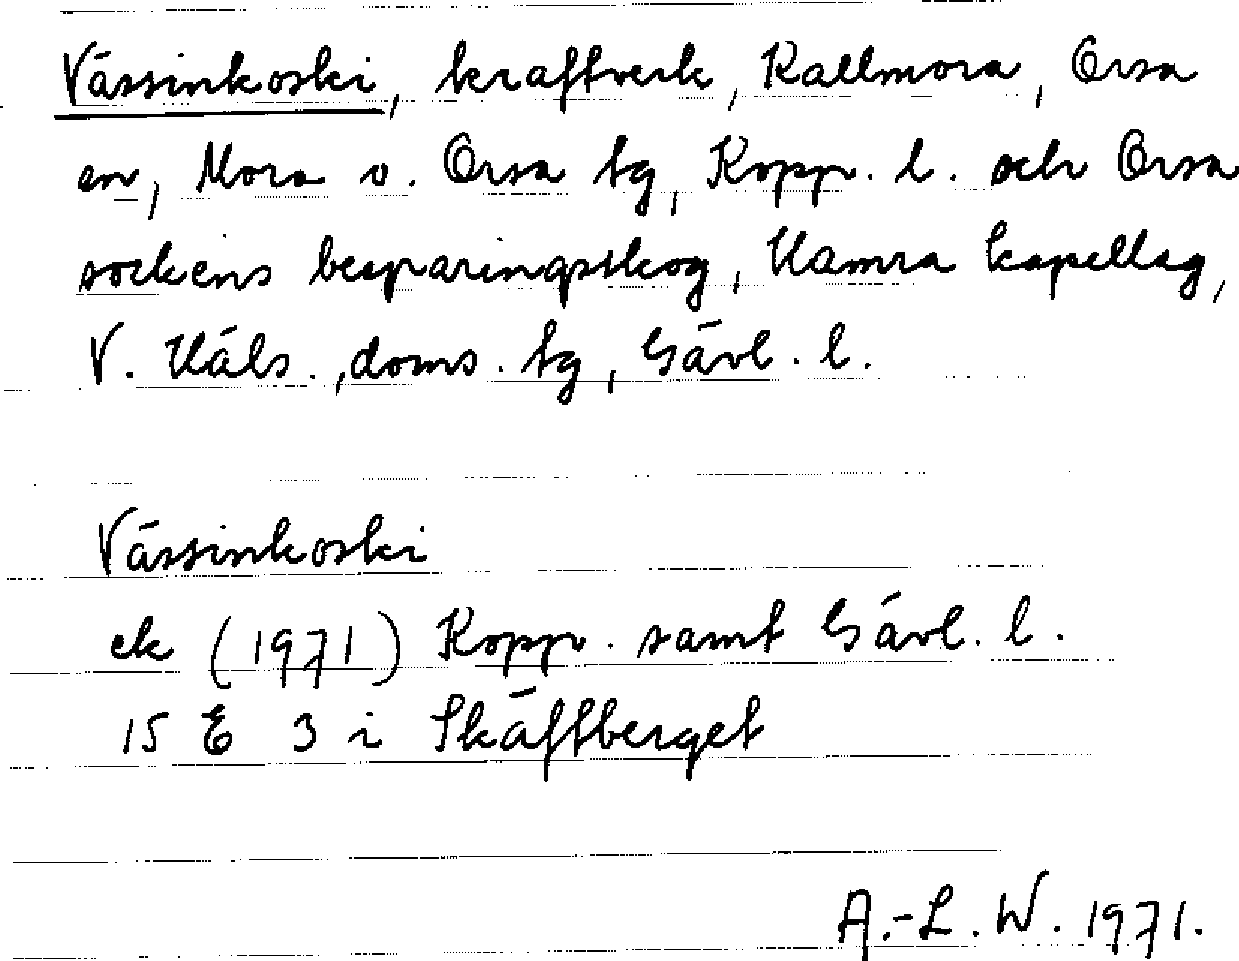 Vässinkoski, kraftverk, Kallmora, Orsa
sn, Mora o. Orsa tg, Kopp. l. och Orsa
sockens besparingsskog, Hamra kapellag,
V. Häls., doms. tg, Gävl. l.
Vässinkoski
ek (1971) Kopp. samt Gävl. l.
15 E 3 i Skäftberget
A.-L. W. 1971.